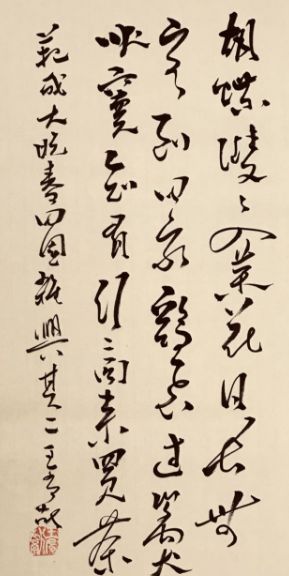 胡蝶雙〻入菜花日長無
客到田家鷄飛過籬犬
吠竇知有行商來買茶
範成大晚春田園雜興其二王